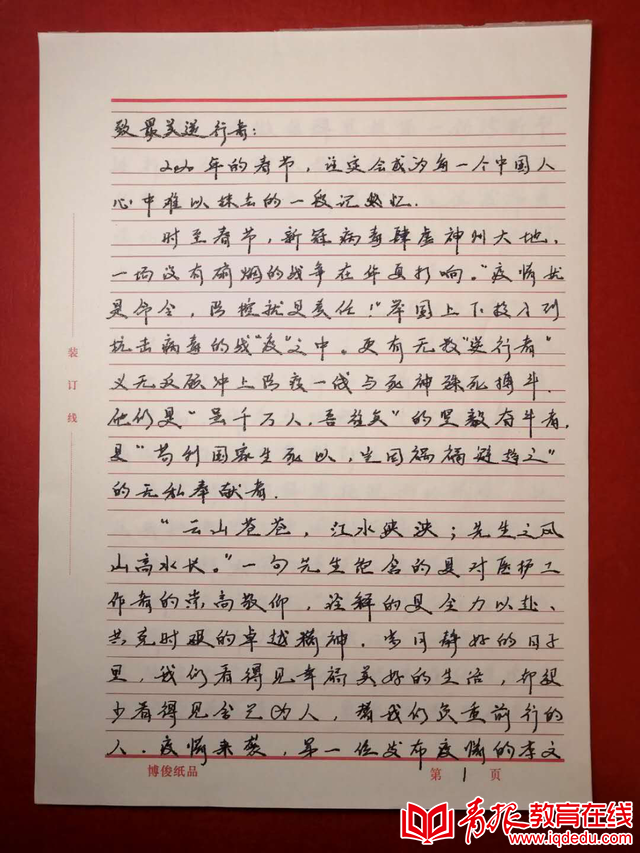 致最美逆行者：
2020年的春节，注定会成为每一个中国人
心中难以抹去的一段记忆。
时至春节，新冠病毒肆虐神州大地，
一场没有硝烟的战争在华夏打响。“疫情就
是命令，防控就是责任！”举国上下投入到
抗击病毒的战“疫”之中。更有无数“逆行者”
义无反顾冲上防疫一线与死神殊死搏斗。
他们是“虽千万人，吾往矣”的坚毅奋斗者，
是“苟利国家生死以，岂因祸福避趋之”
的无私奉献者。
“云山苍苍，江水泱泱；先生之风
山高水长。”一句先生包含的是对医护工
作者的崇高敬仰，诠释的是全力以赴、
共克时艰的卓越精神。岁月静好的日子
里，我们看得见幸福美好的生活，却很
少看得见舍己为人，替我们负重前行的
人。疫情来袭，第一位发布疫情的李文
装订线
博俊纸品
第 1 页
青报教育在线
www.iqdedu.com